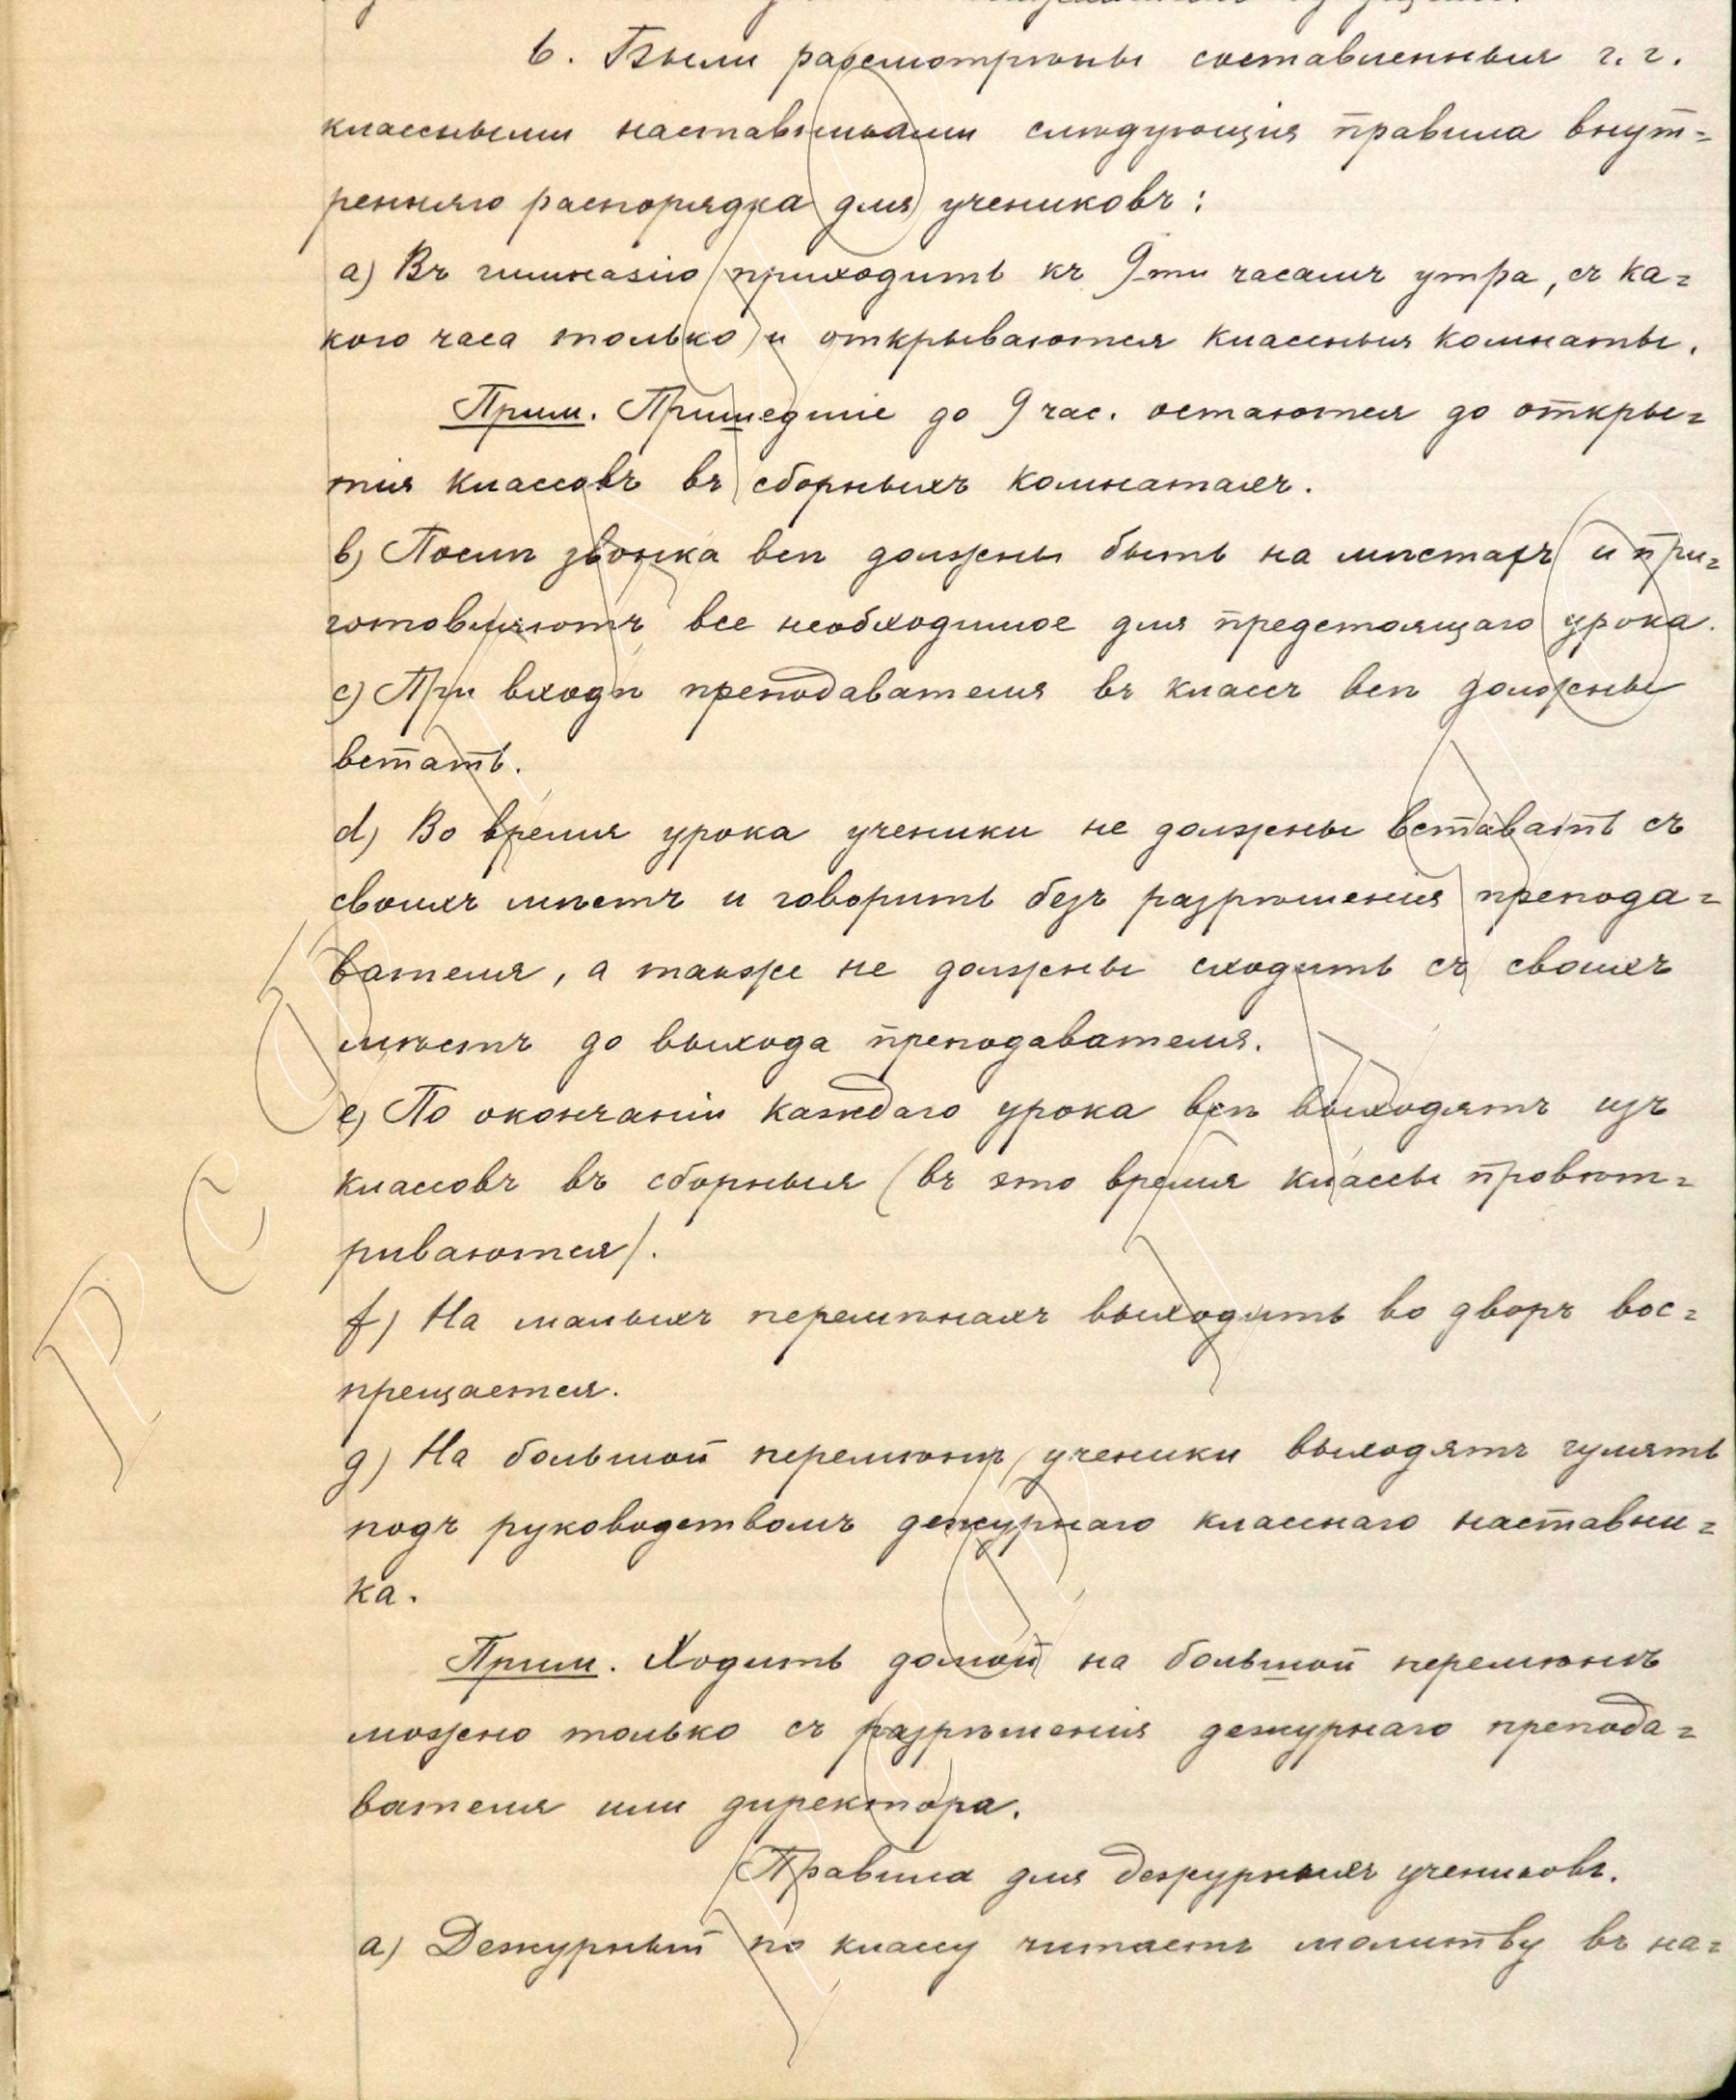 6. Были разсмотрѣны составленныя г. г.
классными наставниками слѣдующія правила внут=
ренняго распорядка для учениковъ:
а) Въ гимназію приходить къ 9-ти часамъ утра, съ ка=
кого часа только и открываются классныя комнаты.
Прим. Пришедшіе до 9 час. остаются до откры=
тія классовъ въ сборныхъ комнатахъ.
b) Послѣ звонка всѣ должны быть на мѣстахъ и при=
готовляютъ все необходимое для предстоящаго урока.
c) При входѣ преподавателя въ классъ всѣ должны
встать.
d) Во время урока ученики не должны вставать съ
своихъ мѣстъ и говорить безъ разрѣшенія препода=
вателя, а также не должны сходить съ своихъ
мѣстъ до выхода преподавателя.
e) По окончаніи каждаго урока всѣ выходятъ изъ
классовъ въ сборныя (въ это время классы провѣт=
риваются).
f) На малыхъ перемѣнахъ выходить во дворъ вос=
прещается.
g) На большой перемѣнѣ ученики выходятъ гулять
подъ руководствомъ дежурнаго класснаго наставни=
ка.
Прим. Ходить домой на большой перемѣнѣ
можно только съ разрѣшенія дежурнаго препода=
вателя или директора.
Правила для дежурныхъ учениковъ.
а) Дежурный по классу читаетъ молитву въ на=